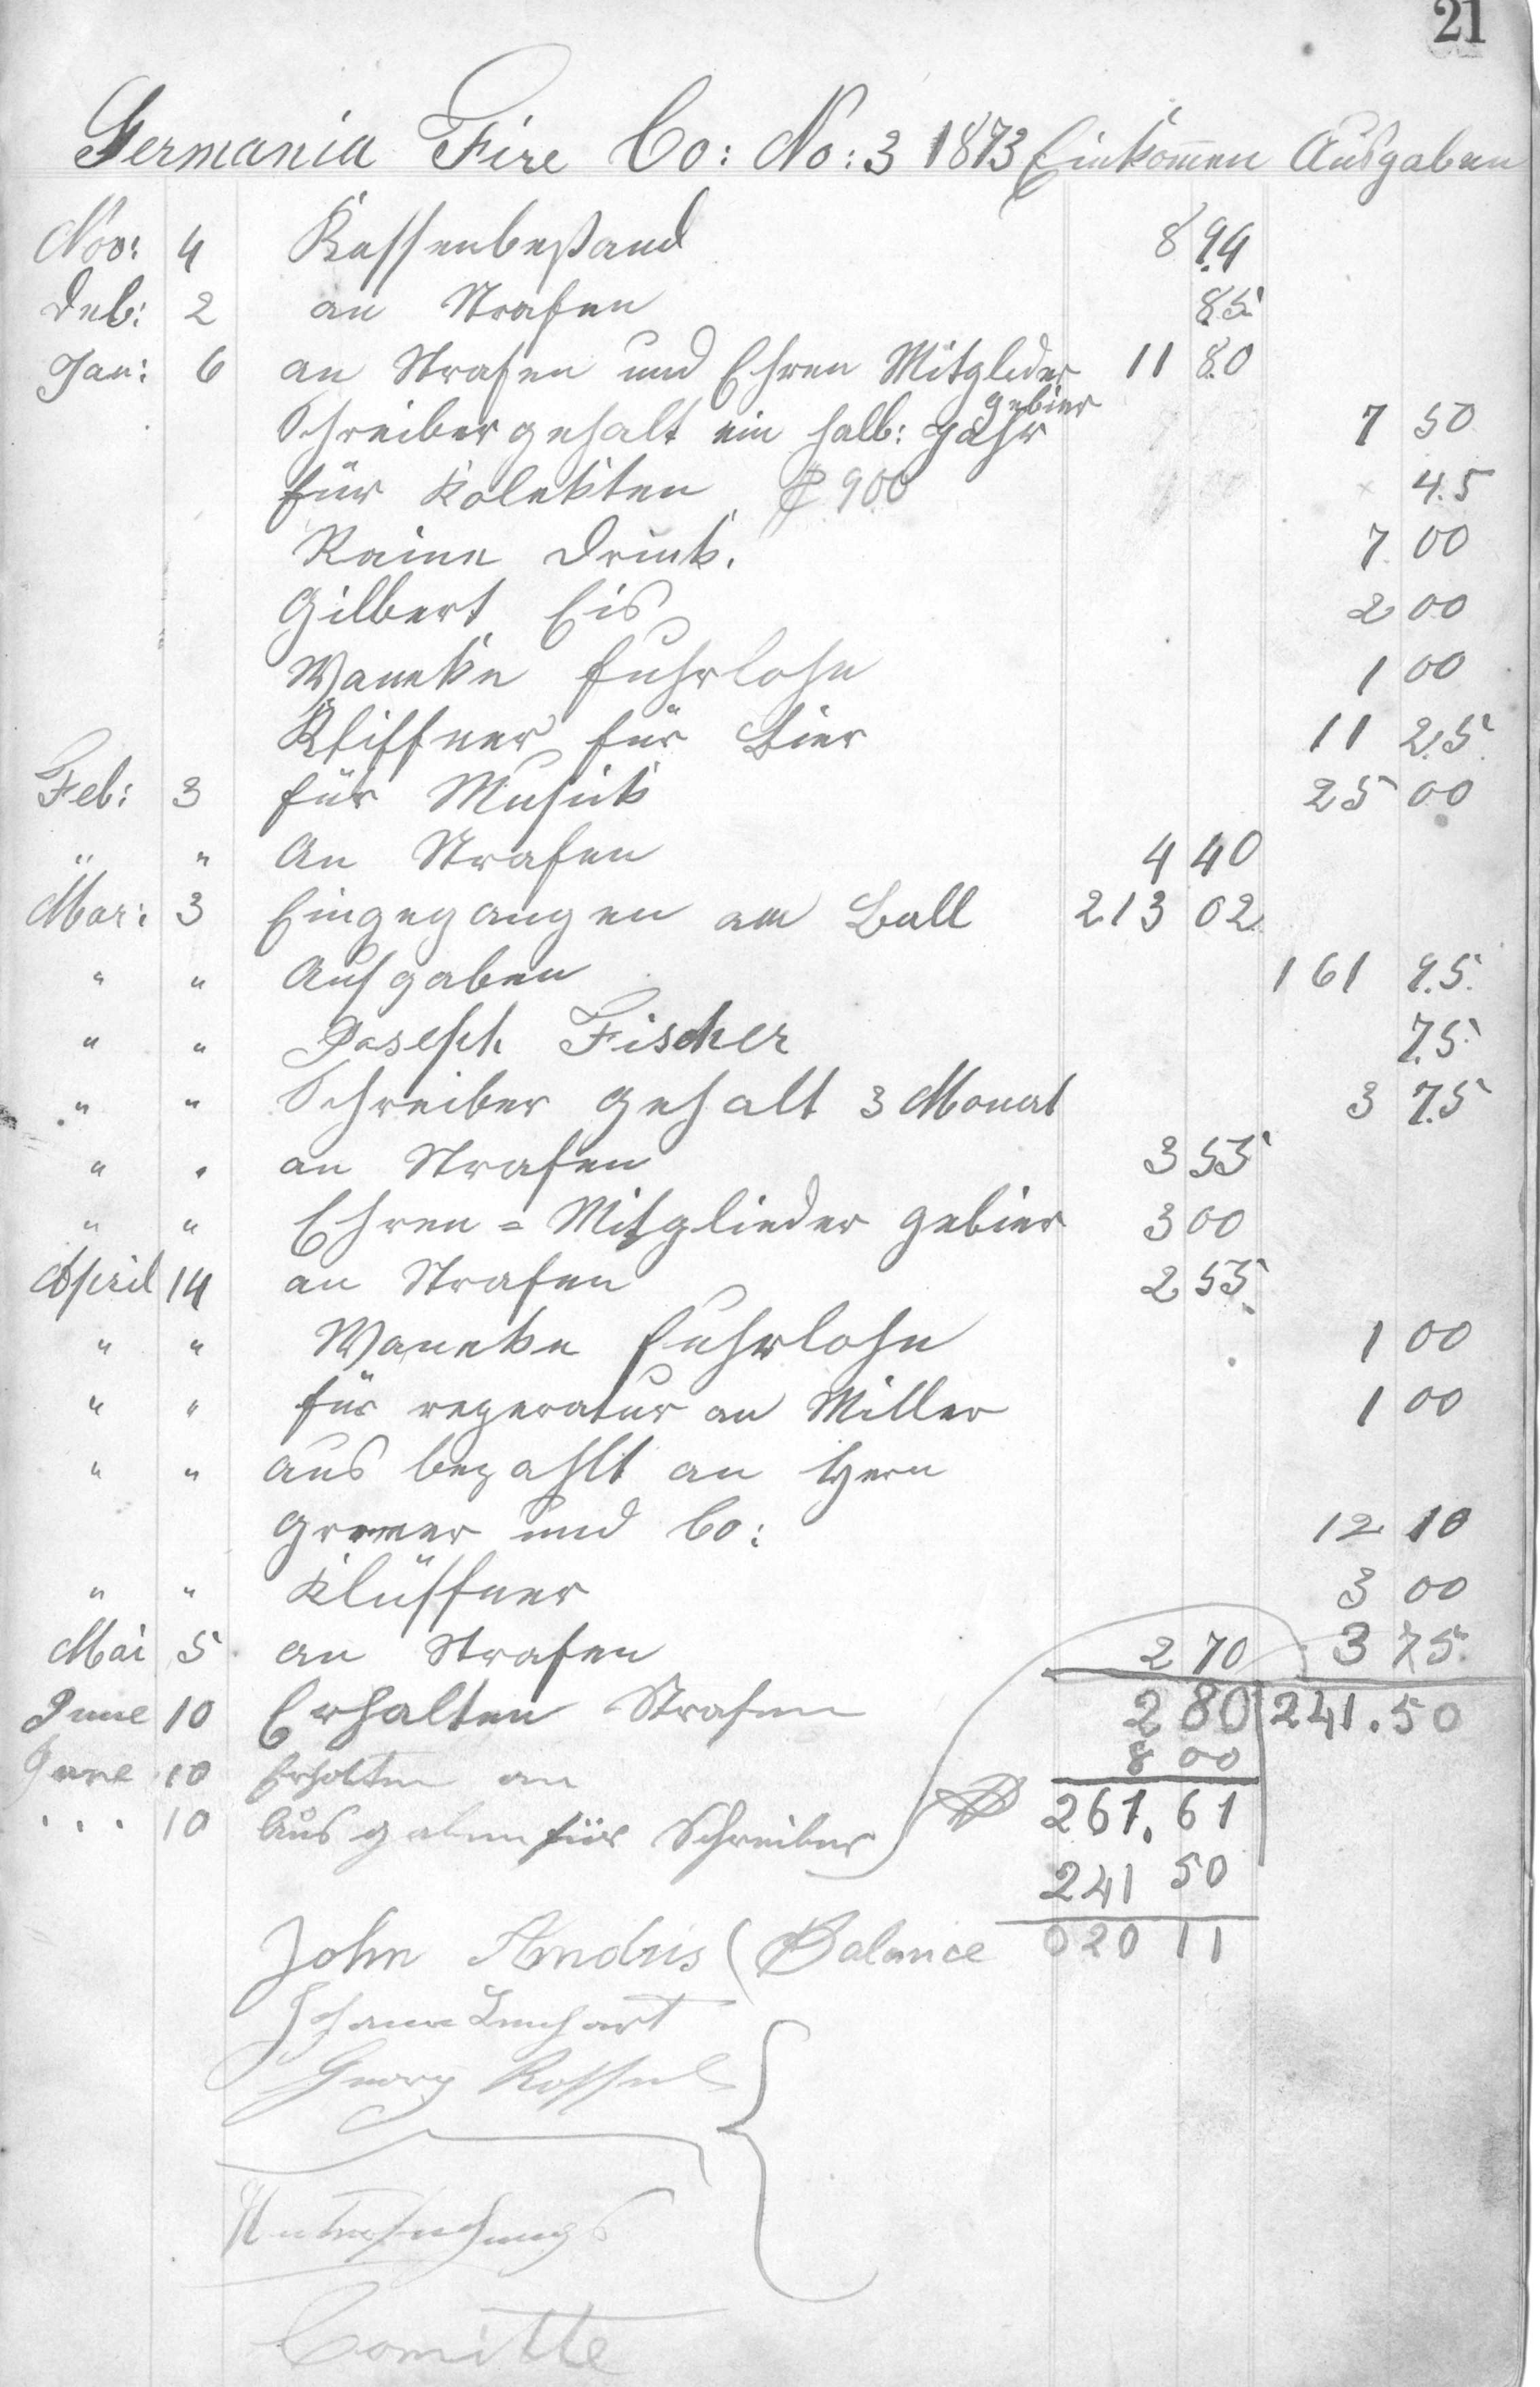 21
Germania Fire Co: No: 3 1873 Einkom̅en Ausgaben
Nov: 4 Kassenbestand 8 94
Deb: 2 an Strafen 85
Jan: 6 an Strafen und Ehren Mitglider 11 80
gebier
Schreibergehalt ein halb: Jahr 7 50
für Kolekten $ 900 45
Raine Druck. 7 00
Gilbert Eis 2 00
Waneke Fuhrlohn 1 00
für Bier 11 25
Feb: 3 für Musick 25 00
" " An Strafen 4 40
Mar: 3 Eingegangen am Ball 213 02
" " Ausgaben 161 95
" " Joseph Fischer 75
" " Schreiber gehalt 3 Monat 3 75
" " an Strafen 3 55
" " Ehren = Mitglieder gebier 3 00
April 14 an Strafen 2 55
" " Waneke Fuhrlohn 1 00
" " für reperatur an Miller 1 00
" " aus bezahlt an Hern
und Co: 12 10
" " Klüffner 3 00
Mai 5 an Strafen 2 70 3 75
June 10 Erhalten Strafen 2 80 241.50
June 10 Erhalten an 8 00
" 10 Ausgaben für Schreiber 261.61
241 50
John Andris ( Balance 020 11
Johann Lenhart
Georg
Untersuchungs
Comitte